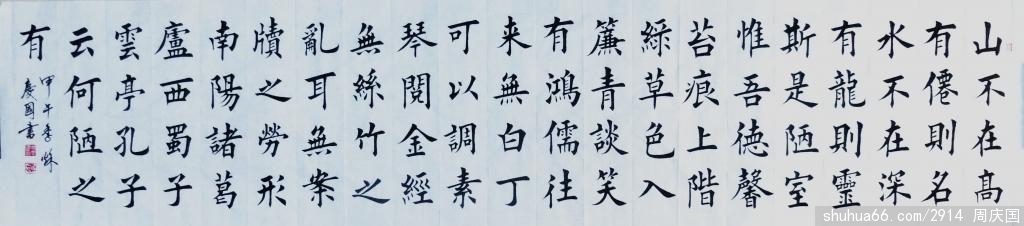 山不在高
有僊則名
水不在深
有龍則靈
斯是陋室
惟吾德馨
苔痕上階
綠草色入
簾青談笑
有鴻儒往
来無白丁
可以調素
琴閱金經
無絲竹之
亂耳無案
牘之勞形
南陽諸葛
廬西蜀子
雲亭孔子
云何陋之
有
甲午季秋
慶國書
shuhua66.com/2914 周庆国